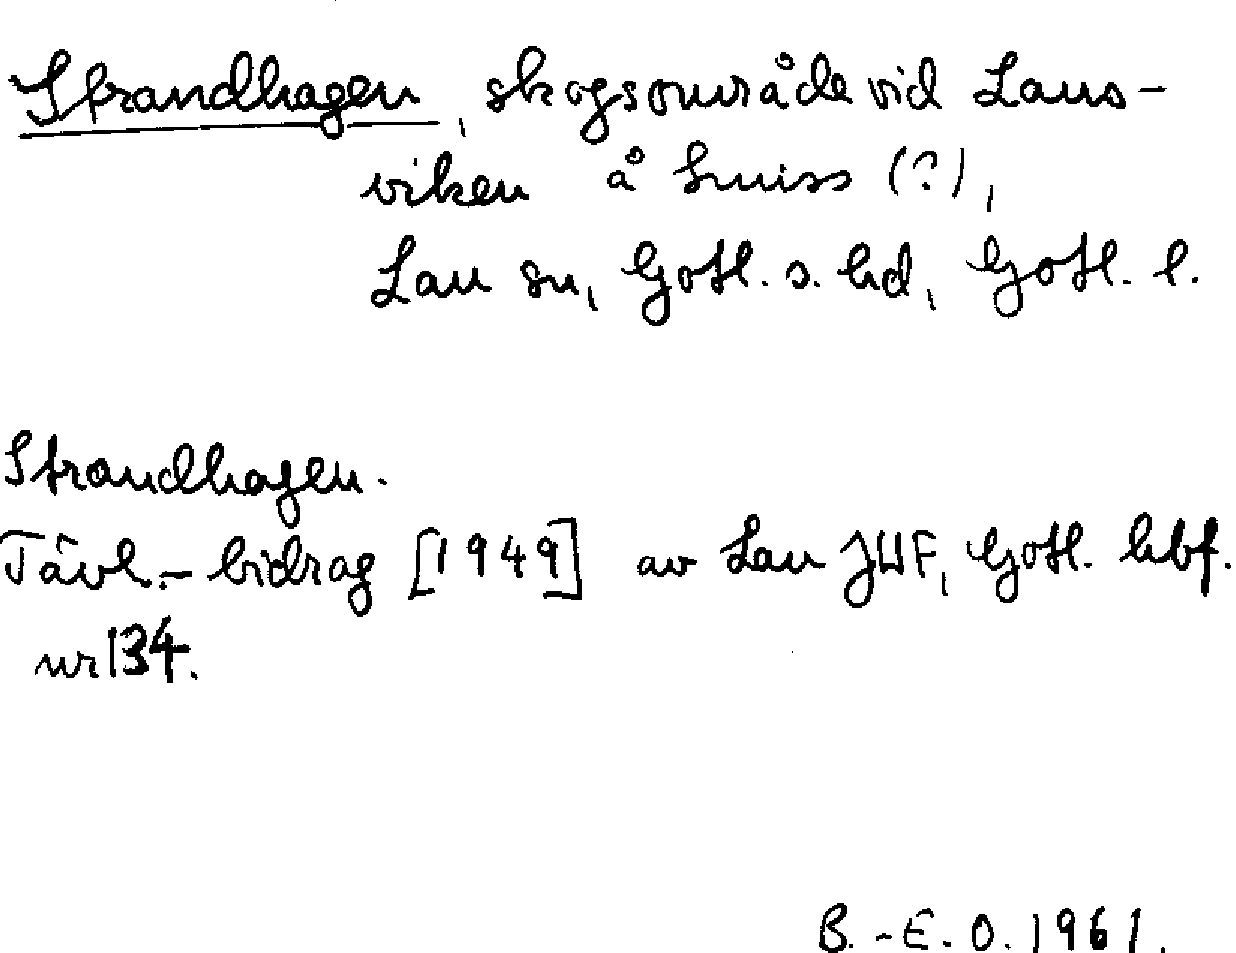 Strandhagen, skogsområde vid Laus-
viken å Smiss (?),
Lau sn, Gotl. s. hd, Gotl. l.
Strandhagen.
Tävl.-bidrag [1949] av Lau JUF, Gotl. hbf.
nr 134.
B.-E. O. 1961.